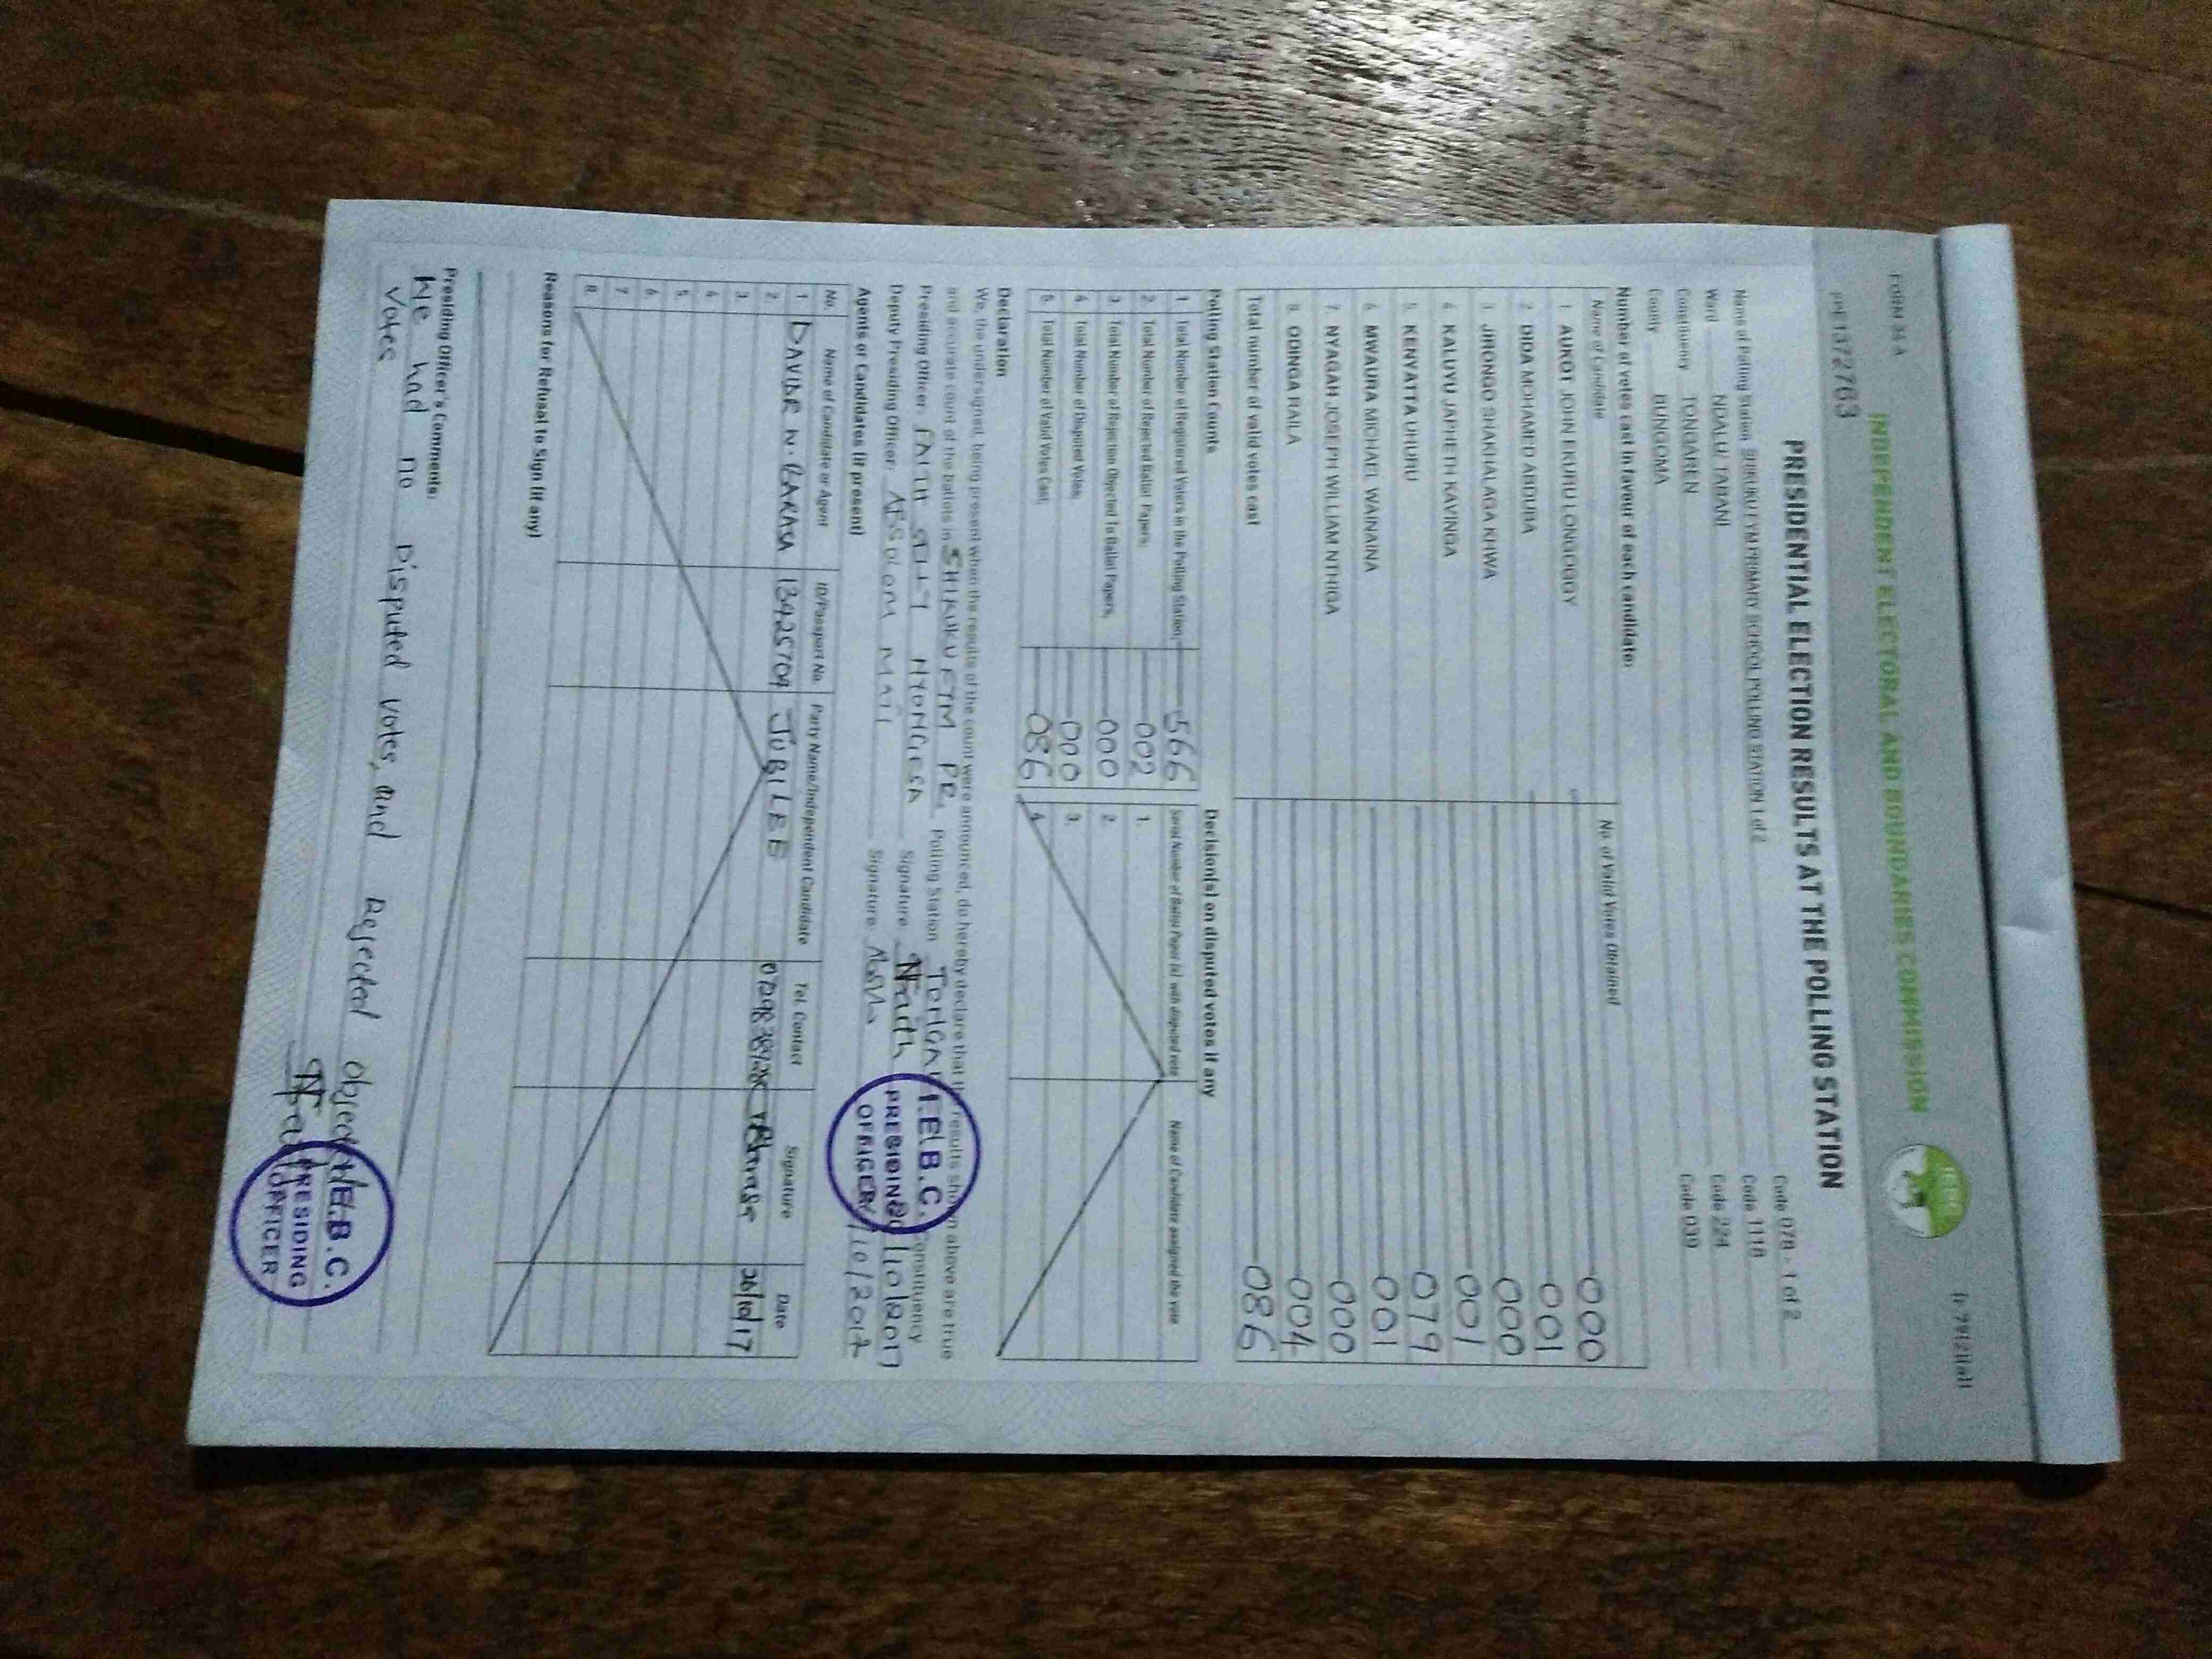 FORM 34 A
INDEPENDENT ELECTORAL AND BOUNDARIES COMMISSION
PRESIDENTIAL ELECTION RESULTS AT THE POLLING STATION
Name of Polling Station PRIMARY SCHOOL POLLING STATION 1 of 2 Code 078 - 1 of 2
Ward NDALU TABANI Code 1118
Constituency TONGAREN Code 224
County BUNGOMA Code 039
Number of votes cast in favour of each candidate:
Name of Candidate No. of Valid Votes Obtained
1. AUKOT JOHN EKURU LONGOGGY 000
2. DIDA MOHAMED ABDUBA 001
3. JIRONGO SHAKHALAGA KHWA 000
4. KALUYU JAPHETH KAVINGA 001
5. KENYATTA UHURU 079
6. MWAURA MICHAEL WAINAINA 001
7. NYAGAH JOSEPH WILLIAM NTHIGA 000
8. ODINGA RAILA 004
Total number of valid votes cast 086
Polling Station Counts
1. Total Number of Registered Voters in the Polling Station; 566
2. Total Number of Rejected Ballot Papers; 002
3. Total Number of Rejection Objected To Ballot Papers; 000
4. Total Number of Disputed Votes; 000
5. Total Number of Valid Votes Cast; 086
Decision(s) on disputed votes if any
Serial Number of Ballot Paper (s) with disputed vote Name of Candidate assigned the vote
1.
2.
3.
4.
Declaration
We, the undersigned, being present when the results of the count were announced, do hereby declare that the results shown above are true
and accurate count of the ballots in FYM PR. Polling Station Constituency
Presiding Officer: FAITH Signature: NFaith
Deputy Presiding Officer: Signature: 10/2017
I.E.B.C.
PRESIDING
OFFICER
Agents or Candidates (if present)
No. Name of Candidate or Agent ID/Passport No. Party Name/Independent Candidate Tel. Contact Signature Date
1. 13425709 JUBILEE 26/10/17
2.
3.
4.
5.
6.
7.
8.
Reasons for Refusal to Sign (if any)
Presiding Officer's Comments:
We had no Disputed votes, and Rejected
votes
I.E.B.C.
PRESIDING
OFFICER